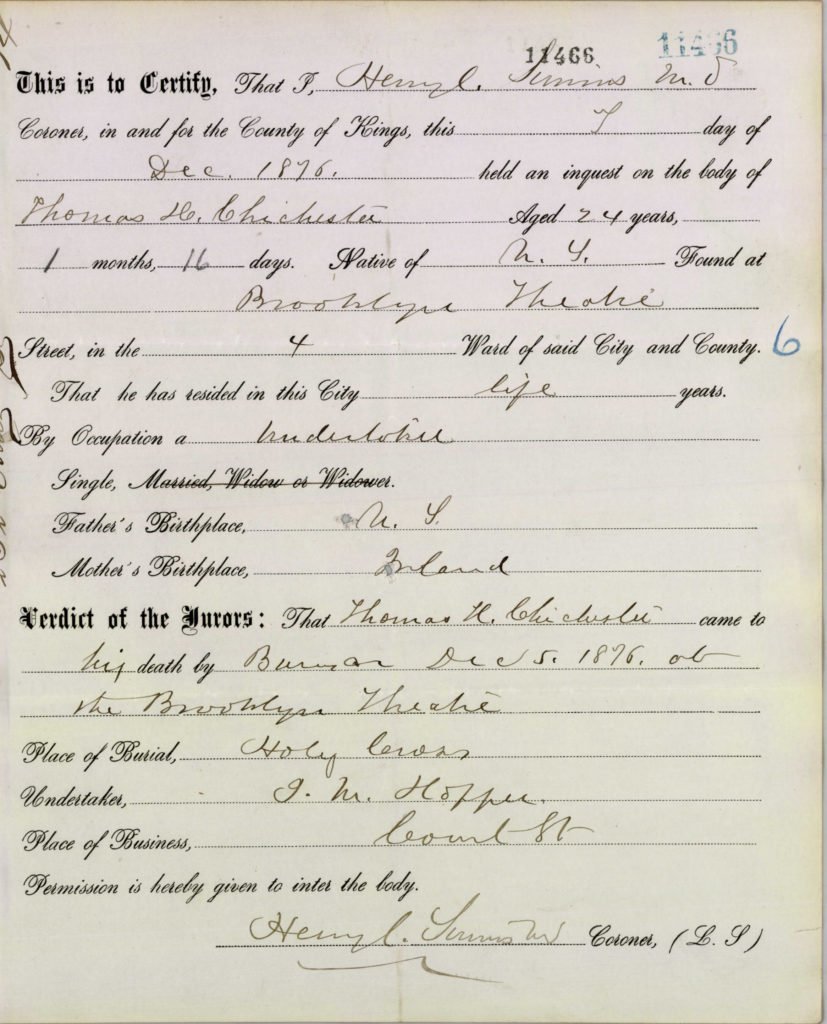 11466 11466
This is to Certify, That I, Henry C. Simms M.D
Coroner, in and for the County of Kings, this 7 day of
Dec. 1876. held an inquest on the body of
Thomas H. Chichester Aged 24 years,
1 months, 16 days. Native of U. S. Found at
Brooklyn Theatre
Street, in the 4 Ward of said City and County. 6
That he has resided in this City life years.
By Occupation a Undertaker
Single, Married, Widow or Widower.
Father's Birthplace, U. S.
Mother's Birthplace, Ireland
Verdict of the Jurors: That Thomas H. Chichester came to
his death by Burns on Dec 5. 1876. at
the Brooklyn Theatre
Place of Burial, Holy Cross
Undertaker, J. M. Hopper.
Place of Business, Court St
Permission is hereby given to inter the body.
Henry C. Simms MD Coroner, (L. S)